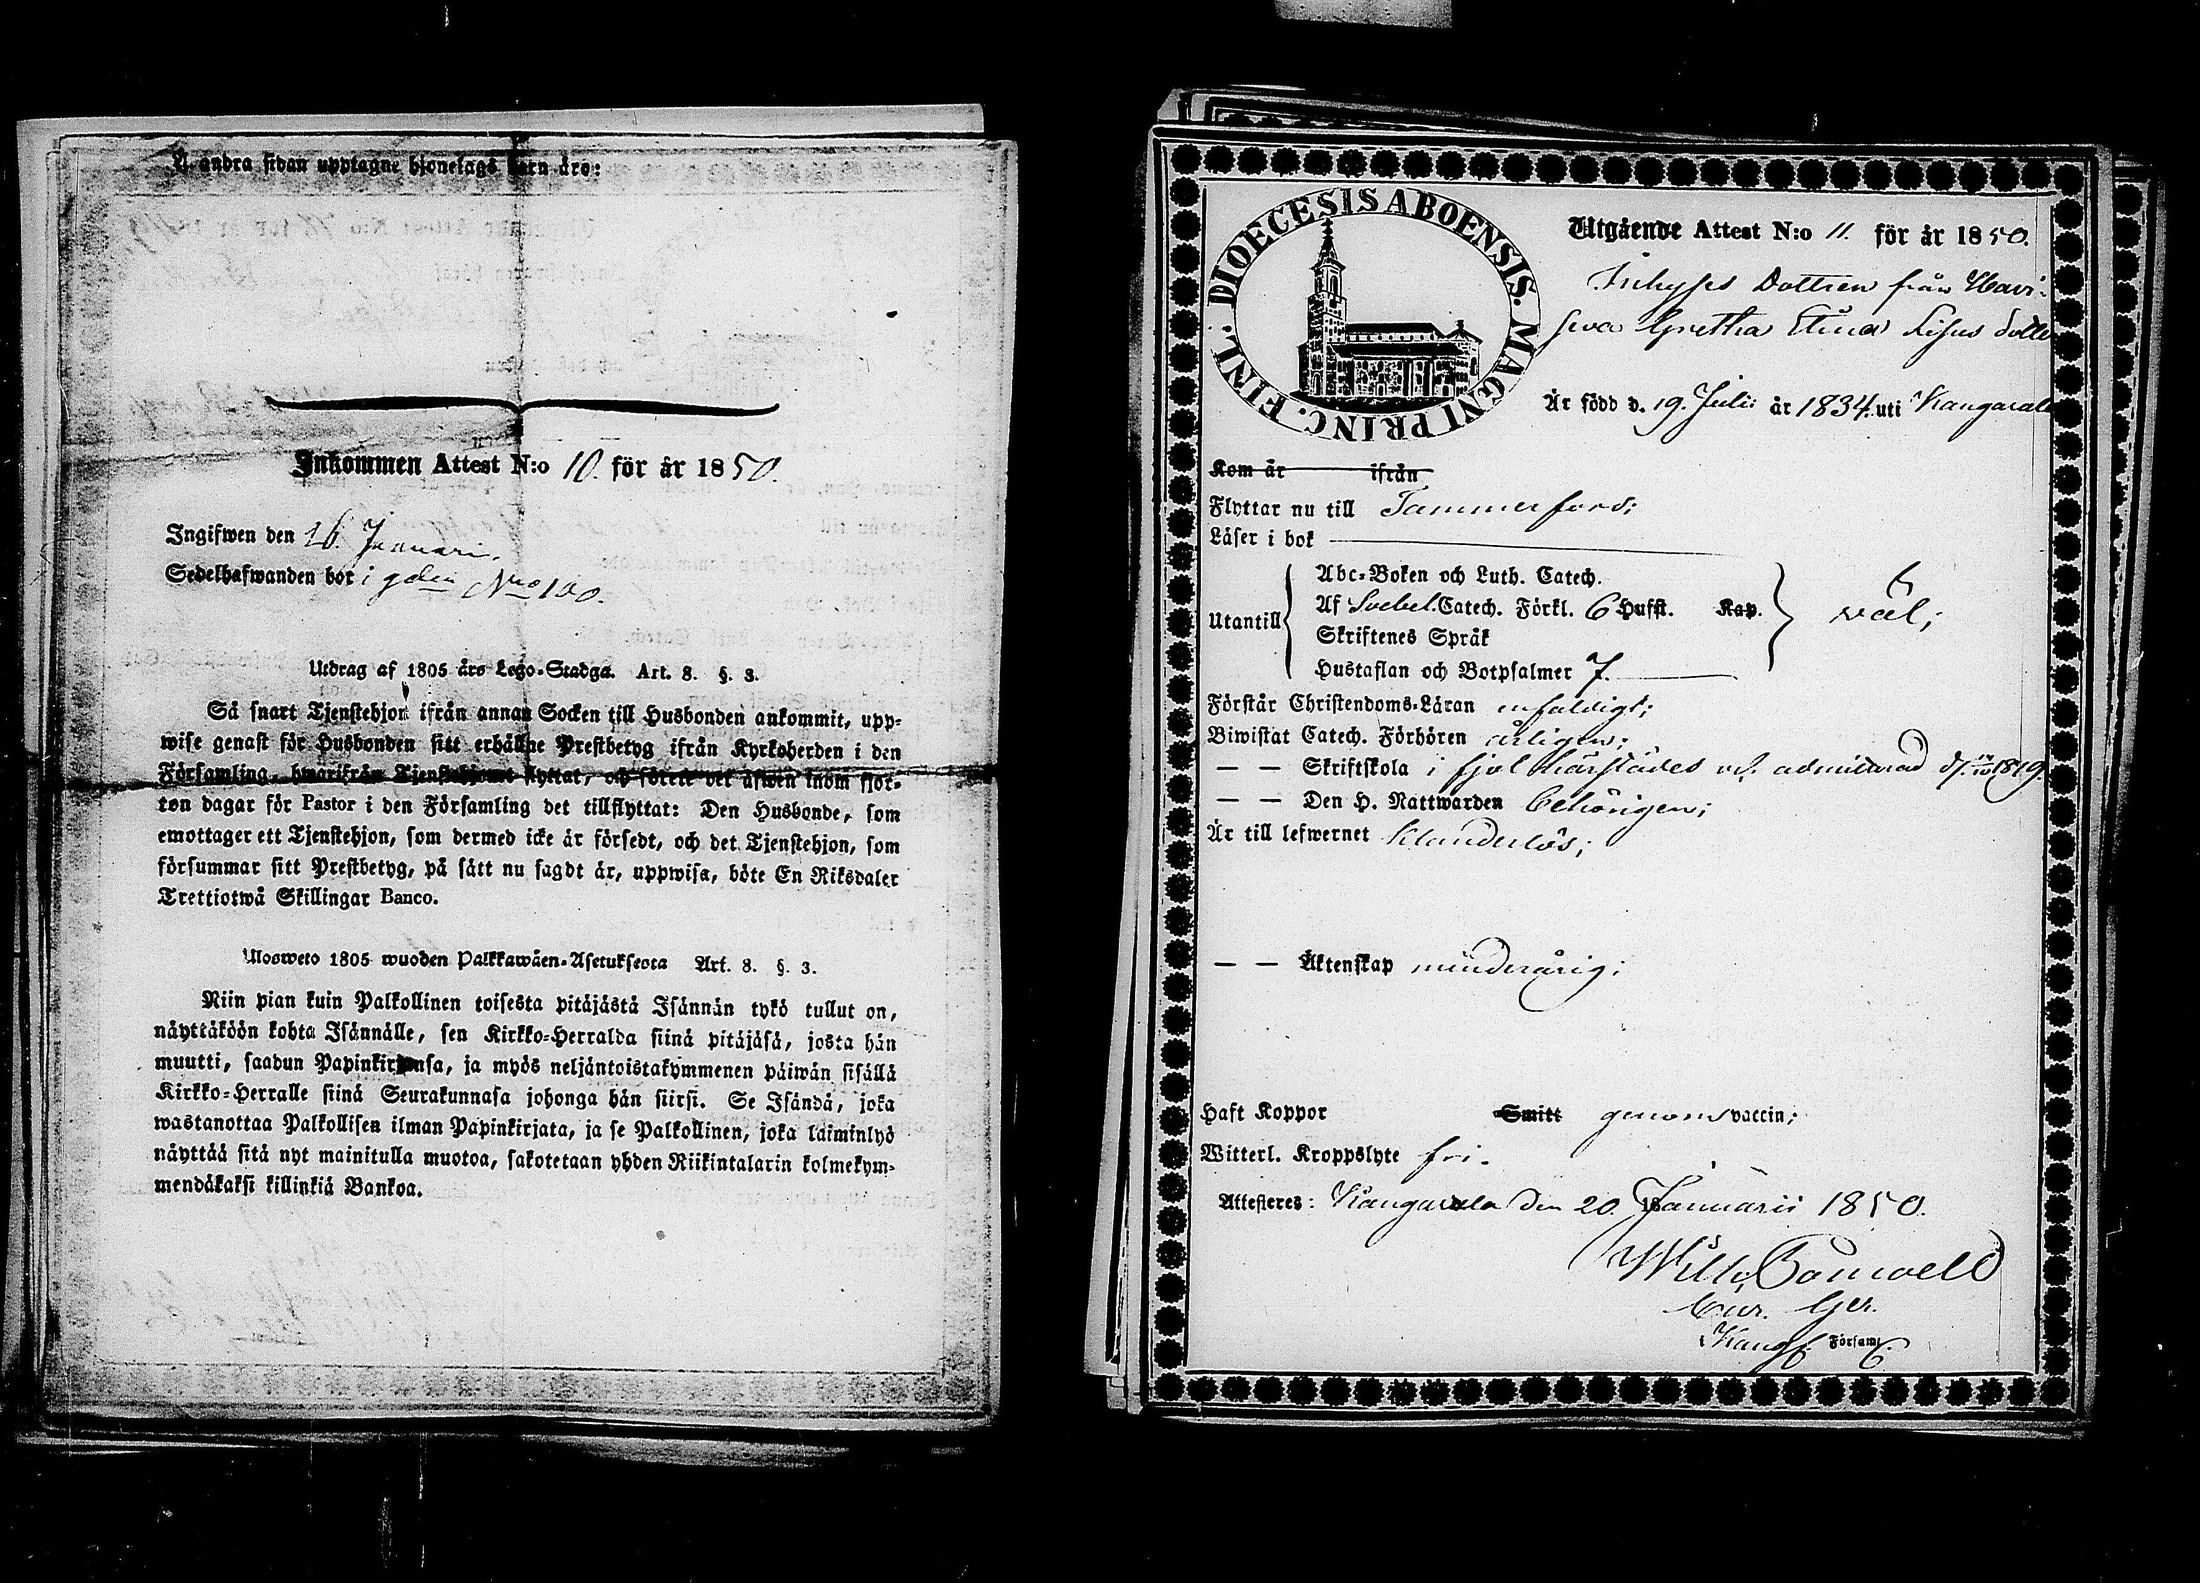 Å andra sidan upptagne hjonelags barn äro:
Inkommen Attest N:o 10. för år 1850.
Ingifwen den 26. Januari.
Sedelhafwanden bor i gden Nro 100.
Utdrag af 1805 års Lego-Stadga. Art. 8. §. 3.
Så snart Tjenstehjon ifrån annan Socken till Husbonden ankommit, upp-
wise genast för Husbonden sitt erhållne Prestbetyg ifrån Kyrkoherden i den
Församling, hwarifrån Tjenstehjonet flyttat, och förete det äfwen inom fjor-
ton dagar för Pastor i den Församling det tillflyttat: Den Husbonde, som
emottager ett Tjenstehjon, som dermed icke är försedt, och det Tjenstehjon, som
försummar sitt Prestbetyg, på sätt nu sagdt är, uppwisa, böte En Riksdaler
Trettiotwå Skillingar Banco.
Ulosweto 1805 wuoden Palkkawäen-Asetuksesta Art. 8. §. 3.
Niin pian kuin Palkollinen toisesta pitäjästä Isännän tykö tullut on,
näyttäköön kohta Isännälle, sen Kirkko-Herralda siinä pitäjäsä, josta hän
muutti, saadun Papinkirjansa, ja myös neljäntoistakymmenen päiwän sisällä
Kirkko-Herralle siinä Seurakunnasa johonga hän siirsi. Se Isändä, joka
wastanottaa Palkollisen ilman Papinkirjata, ja se Palkollinen, joka laiminlyö
näyttää sitä nyt mainitulla muotoa, sakotetaan yhden Riikintalarin kolmekym-
mendäkaksi killinkiä Bankoa.
FINL. DIOECESIS ABOENSIS. MAGNI PRINC.
Utgående Attest N:o 11. för år 1850.
Inhyses Dottren från Havi-
seva Gretha Stina Lisas dotter
Är född d. 19. Julii år 1834. uti Kangasala
Kom år ifrån
Flyttar nu till Tammerfors;
Läser i bok
Abc-Boken och Luth. Catech.
Utantill Af Svebel. Catech. Förkl. 6 Hufst. Kap. väl;
Skriftenes Språk
Hustaflan och Botpsalmer 7.
Förstår Christendoms-Läran enfaldigt;
Biwistat Catech. Förhören årligen;
— — Skriftskola i fjol härstädes och admitterad d. 1849.
— — Den H. Nattwarden behörigen;
Är till lefwernet klanderlös;
— — Äktenskap minderårig;
Haft Koppor Smitt genom vaccin;
Witterl. Kroppslyte fri.
Attesteres: Kangasala den 20. 18 Januarii 1850.
Wilh.
Cur. Ger.
i Kang. Församl.